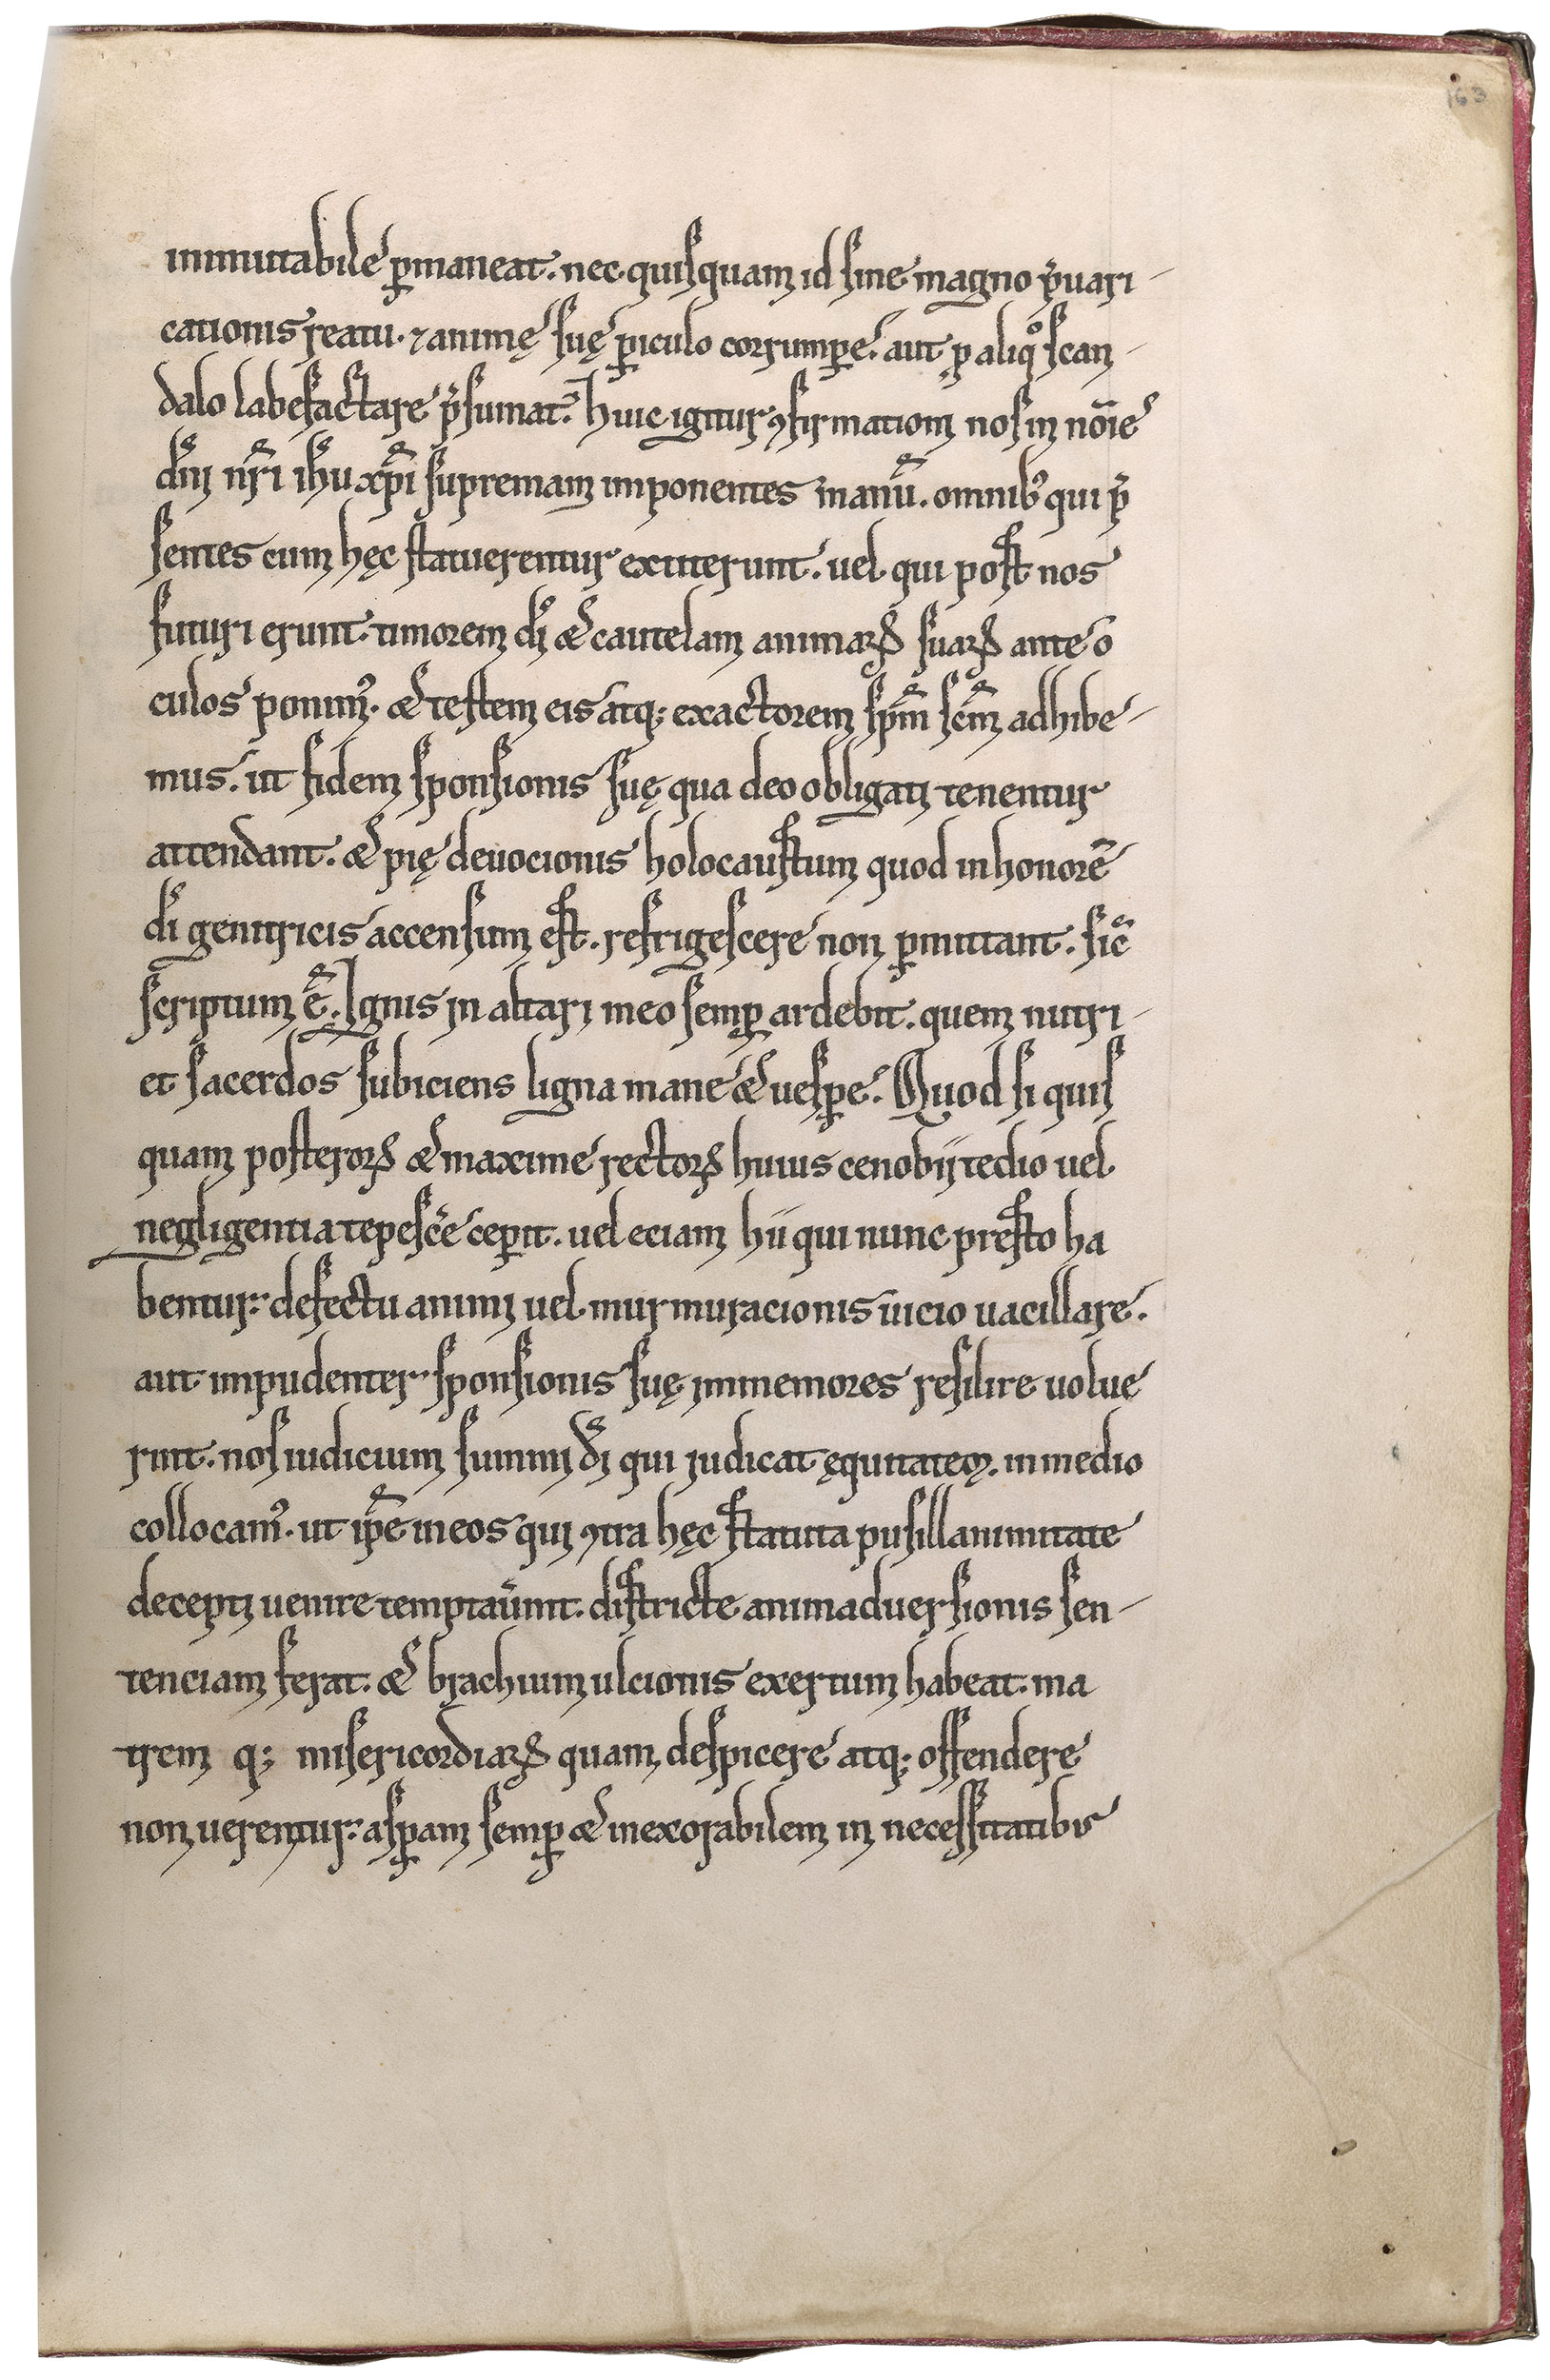 163
immutabile ꝑmaneat. nec quisquam id sine magno p̄uari-
cationis reatu. ⁊ animę suę ꝑiculo corrumꝑe. aut ꝑ aliqͦ scan-
dalo labefactare p̄sumat. Huic igitur ꝯfirmationi nos in no͞ie
dn̄i nr̄i ih̄u xp̄i supremam imponentes manū. omnibꝰ qui p̄
sentes cum hęc statuerentur extiterunt. uel qui post nos
futuri erunt. timorem dī et cautelam animaꝝ suaꝝ ante o
culos ponimꝰ. et testem eis atq; exactorem sp̄m sc̄m adhibe-
mus. ut fidem sponsionis suę qua deo obligati tenentur
attendant. et pię deuocionis holocaustum quod in honorē
dī genitricis accensum est. refrigescere non ꝑmittant. sic̄
scriptum ē. Ignis in altari meo semꝑ ardebit. quem nutri-
et sacerdos subiciens ligna mane et uesꝑe. Quod si quis
quam posteroꝝ et maxime rectoꝝ huius cenobii tedio uel
negligentia tepesc̄e ceꝑit. uel eciam hii qui nunc presto ha
bentur. defectu animi uel murmuracionis uicio uacillare.
aut impudenter sponsionis suę immemores resilire uolue
rint. nos iudicium summi dī qui iudicat ęquitatem. in medio
collocamꝰ. ut ip̄e in eos qui ꝯtra hęc statuta pusillanimitate
decepti uenire temptau̅int. districte animaduersionis sen-
tenciam ferat. et brachium ulcionis exertum habeat. ma
trem q; misericordiaꝝ quam despicere atq; offendere
non uerentur. asꝑam semꝑ et inexorabilem in necessitatibus